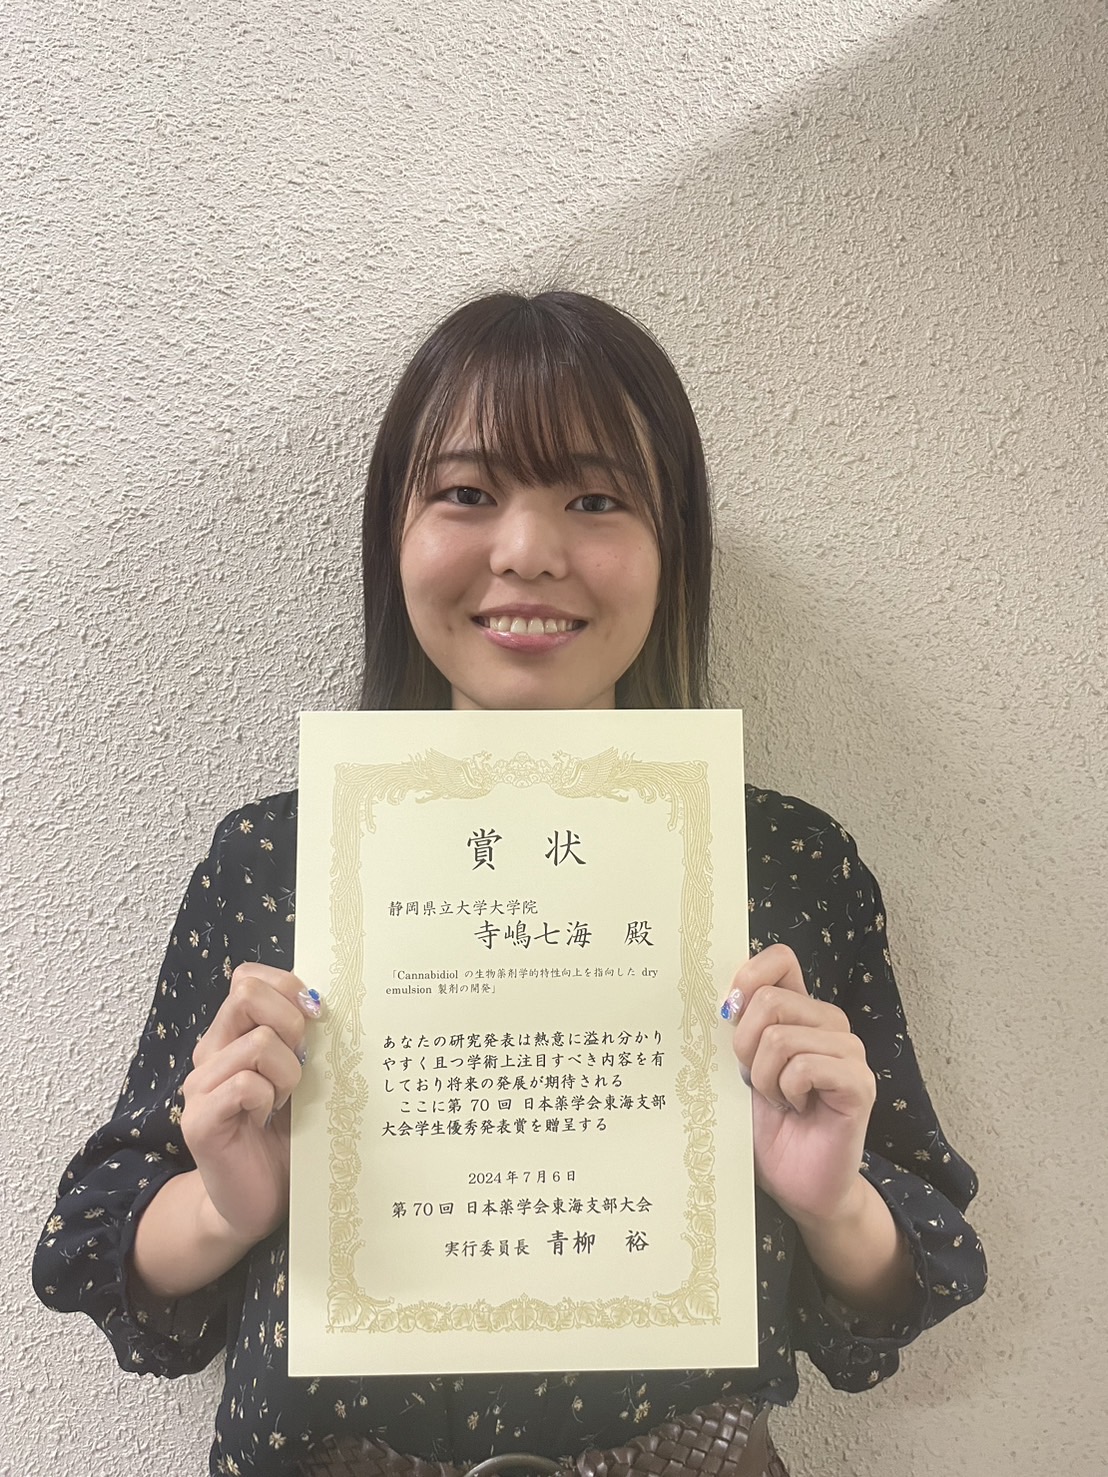 賞 状
静岡県立大学大学院
寺嶋七海 殿
「Cannabidiol の生物薬剤学的特性向上を指向した dry
emulsion 製剤の開発」
あなたの研究発表は熱意に溢れ分かり
やすく且つ学術上注目すべき内容を有
しており将来の発展が期待される
ここに第 70 回 日本薬学会東海支部
大会学生優秀発表賞を贈呈する
2024年7月6日
第 70 回 日本薬学会東海支部大会
実行委員長 青柳 裕